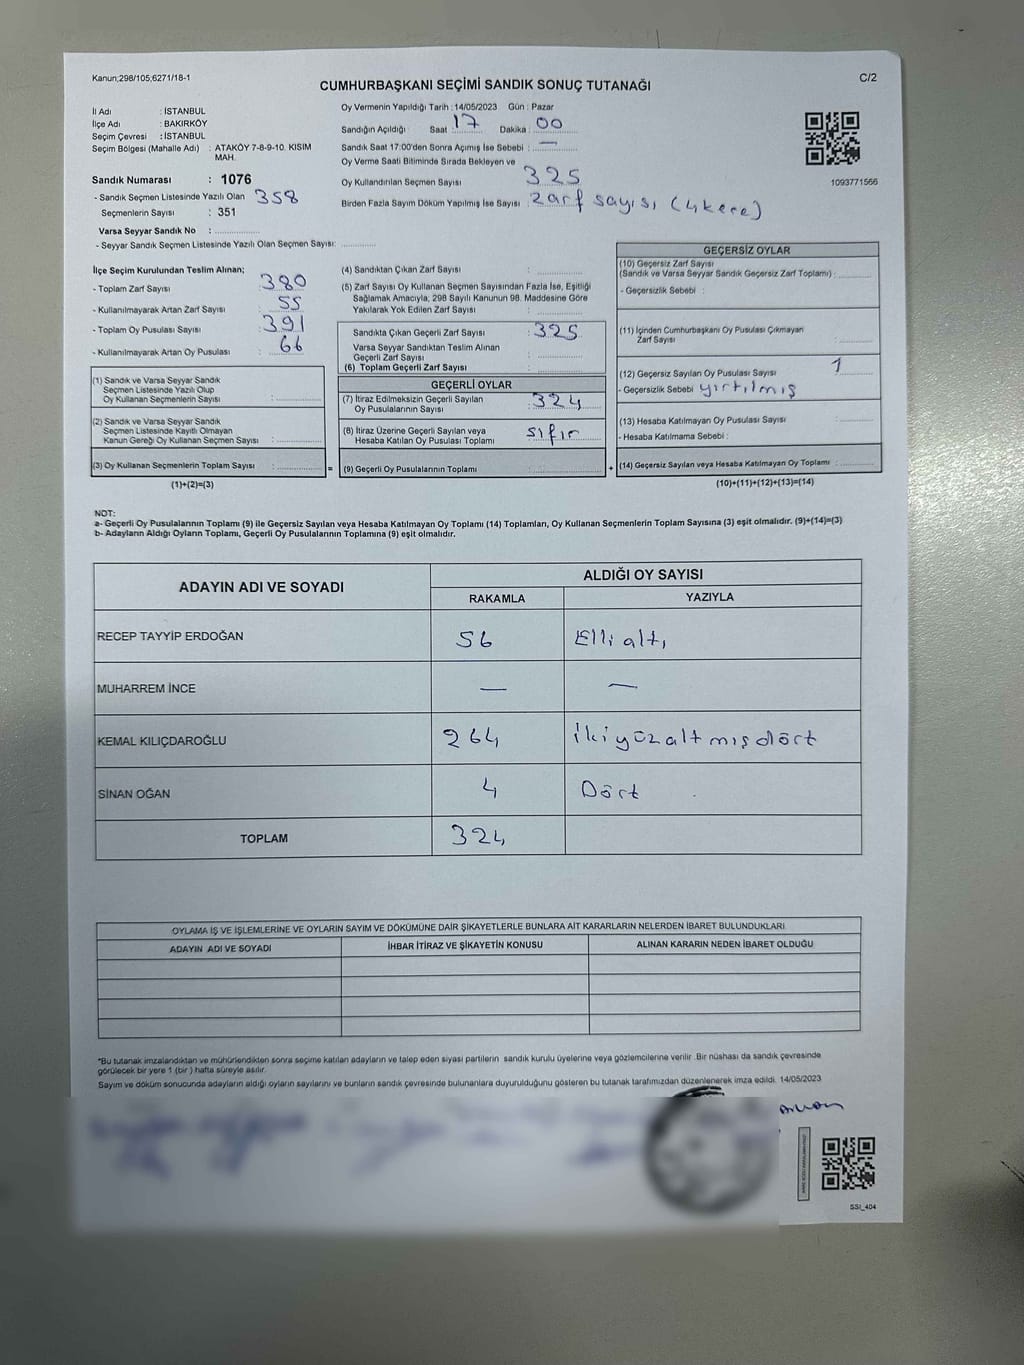 Kanun;298/105;6271/18-1
C/2
CUMHURBAŞKANI SEÇİMİ SANDIK SONUÇ TUTANAĞI
İl Adı : İSTANBUL
İlçe Adı : BAKIRKÖY
Seçim Çevresi : İSTANBUL
Seçim Bölgesi (Mahalle Adı) : ATAKÖY 7-8-9-10. KISIM MAH.
Sandık Numarası : 1076
- Sandık Seçmen Listesinde Yazılı Olan 358
Seçmenlerin Sayısı : 351
Varsa Seyyar Sandık No :
- Seyyar Sandık Seçmen Listesinde Yazılı Olan Seçmen Sayısı:
Oy Vermenin Yapıldığı Tarih : 14/05/2023 Gün : Pazar
Sandığın Açıldığı Saat 17 Dakika 00
Sandık Saat 17:00'den Sonra Açımış İse Sebebi : —
Oy Verme Saati Bitiminde Sırada Bekleyen ve
Oy Kullandırılan Seçmen Sayısı 325
Birden Fazla Sayım Döküm Yapılmış İse Sayısı : zarf sayısı (4kere)
1093771566
İlçe Seçim Kurulundan Teslim Alınan;
- Toplam Zarf Sayısı : 380
- Kullanılmayarak Artan Zarf Sayısı : 55
- Toplam Oy Pusulası Sayısı : 391
- Kullanılmayarak Artan Oy Pusulası : 66
(1) Sandık ve Varsa Seyyar Sandık
Seçmen Listesinde Yazılı Olup
Oy Kullanan Seçmenlerin Sayısı :
(2) Sandık ve Varsa Seyyar Sandık
Seçmen Listesinde Kayıtlı Olmayan
Kanun Gereği Oy Kullanan Seçmen Sayısı :
(3) Oy Kullanan Seçmenlerin Toplam Sayısı : =
(1)+(2)=(3)
(4) Sandıktan Çıkan Zarf Sayısı :
(5) Zarf Sayısı Oy Kullanan Seçmen Sayısından Fazla İse, Eşitliği
Sağlamak Amacıyla; 298 Sayılı Kanunun 98. Maddesine Göre
Yakılarak Yok Edilen Zarf Sayısı :
Sandıkta Çıkan Geçerli Zarf Sayısı : 325
Varsa Seyyar Sandıktan Teslim Alınan
Geçerli Zarf Sayısı :
(6) Toplam Geçerli Zarf Sayısı :
GEÇERLİ OYLAR
(7) İtiraz Edilmeksizin Geçerli Sayılan
Oy Pusulalarının Sayısı : 324
(8) İtiraz Üzerine Geçerli Sayılan veya
Hesaba Katılan Oy Pusulası Toplamı : sıfır
(9) Geçerli Oy Pusulalarının Toplamı : +
GEÇERSİZ OYLAR
(10) Geçersiz Zarf Sayısı
(Sandık ve Varsa Seyyar Sandık Geçersiz Zarf Toplamı) :
- Geçersizlik Sebebi :
(11) İçinden Cumhurbaşkanı Oy Pusulası Çıkmayan
Zarf Sayısı :
(12) Geçersiz Sayılan Oy Pusulası Sayısı : 1
- Geçersizlik Sebebi yırtılmış
(13) Hesaba Katılmayan Oy Pusulası Sayısı :
- Hesaba Katılmama Sebebi :
(14) Geçersiz Sayılan veya Hesaba Katılmayan Oy Toplamı :
(10)+(11)+(12)+(13)=(14)
NOT:
a- Geçerli Oy Pusulalarının Toplamı (9) ile Geçersiz Sayılan veya Hesaba Katılmayan Oy Toplamı (14) Toplamları, Oy Kullanan Seçmenlerin Toplam Sayısına (3) eşit olmalıdır. (9)+(14)=(3)
b- Adayların Aldığı Oyların Toplamı, Geçerli Oy Pusulalarının Toplamına (9) eşit olmalıdır.
ADAYIN ADI VE SOYADI
ALDIĞI OY SAYISI
RAKAMLA YAZIYLA
RECEP TAYYİP ERDOĞAN 56 Elli altı
MUHARREM İNCE — —
KEMAL KILIÇDAROĞLU 264 İkiyüzaltmışdört
SİNAN OĞAN 4 Dört
TOPLAM 324
OYLAMA İŞ VE İŞLEMLERİNE VE OYLARIN SAYIM VE DÖKÜMÜNE DAİR ŞİKAYETLERLE BUNLARA AİT KARARLARIN NELERDEN İBARET BULUNDUKLARI
ADAYIN ADI VE SOYADI İHBAR İTİRAZ VE ŞİKAYETİN KONUSU ALINAN KARARIN NEDEN İBARET OLDUĞU
*Bu tutanak imzalandıktan ve mühürlendikten sonra seçime katılan adayların ve talep eden siyasi partilerin sandık kurulu üyelerine veya gözlemcilerine verilir .Bir nüshası da sandık çevresinde
görülecek bir yere 1 (bir ) hafta süreyle asılır.
Sayım ve döküm sonucunda adayların aldığı oyların sayılarını ve bunların sandık çevresinde bulunanlara duyurulduğunu gösteren bu tutanak tarafımızdan düzenlenerek imza edildi. 14/05/2023
SSI_404